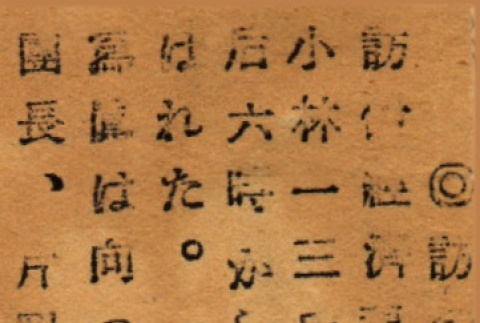 ◎訪
訪伊經濟
小林一三
后六時か
はれた。
寫眞は向
團長、